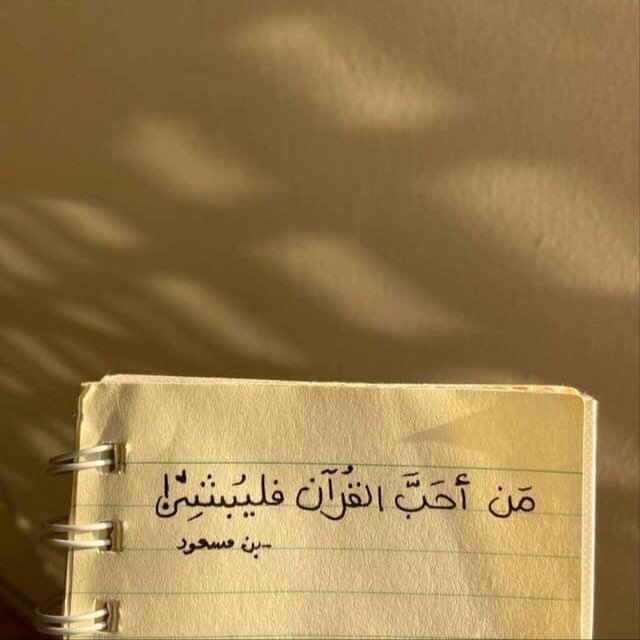 مَن أحَبَّ القُرآن فليُبشِر!
- بن مسعود